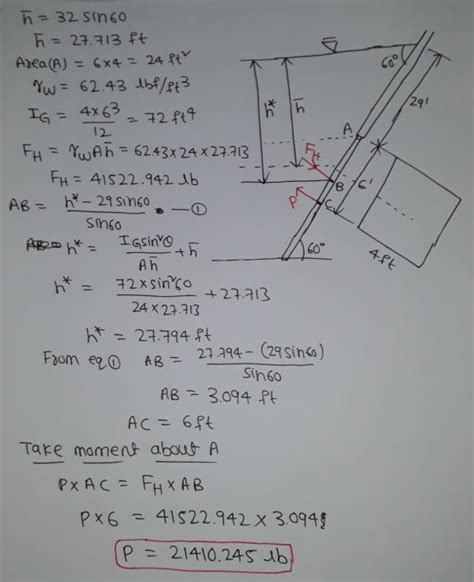 h̄ = 32 sin60
h̄ = 27.713 ft
Area(A) = 6x4 = 24 ft²
γw = 62.43 lbf/ft³
IG = 4x6³/12 = 72 ft⁴
FH = γwAh̄ = 62.43x24x27.713
FH = 41522.942 lb
AB = h* - 29 sin60 / sin60 - ①
h* = IG sin²θ / Ah̄ + h̄
h* = 72 x sin²60 / 24 x 27.713 + 27.713
h* = 27.794 ft
From eq ① AB = 27.794 - (29 sin60) / sin60
AB = 3.094 ft
AC = 6 ft
Take moment about A
P x AC = FH x AB
P x 6 = 41522.942 x 3.094
P = 21410.245 lb
60°
29'
h*
h̄
A
FH
B
P
C
6'
4 ft
60°